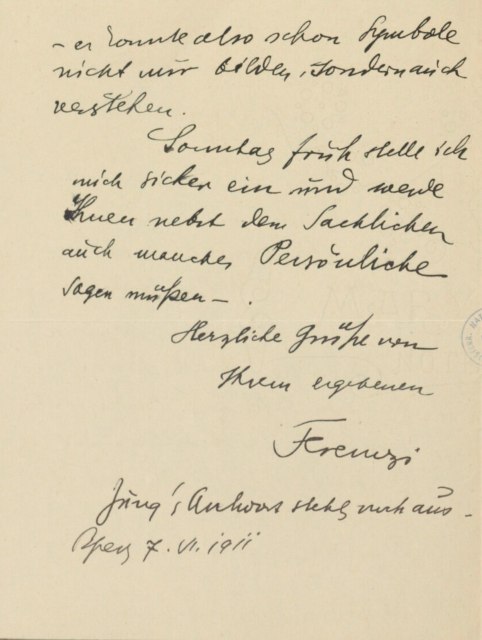 – er konnte also schon Symbole
nicht nur bilden, sondern auch
verstehen.
Sonntag früh stelle ich
mich sicher ein und werde
Ihnen nebst dem Sachlichen
auch manches Persönliche
sagen müßen – .
Herzliche Grüße von
Ihrem ergebenen
Ferenczi
Jung's Antwort steht noch aus –
7. VI. 1911